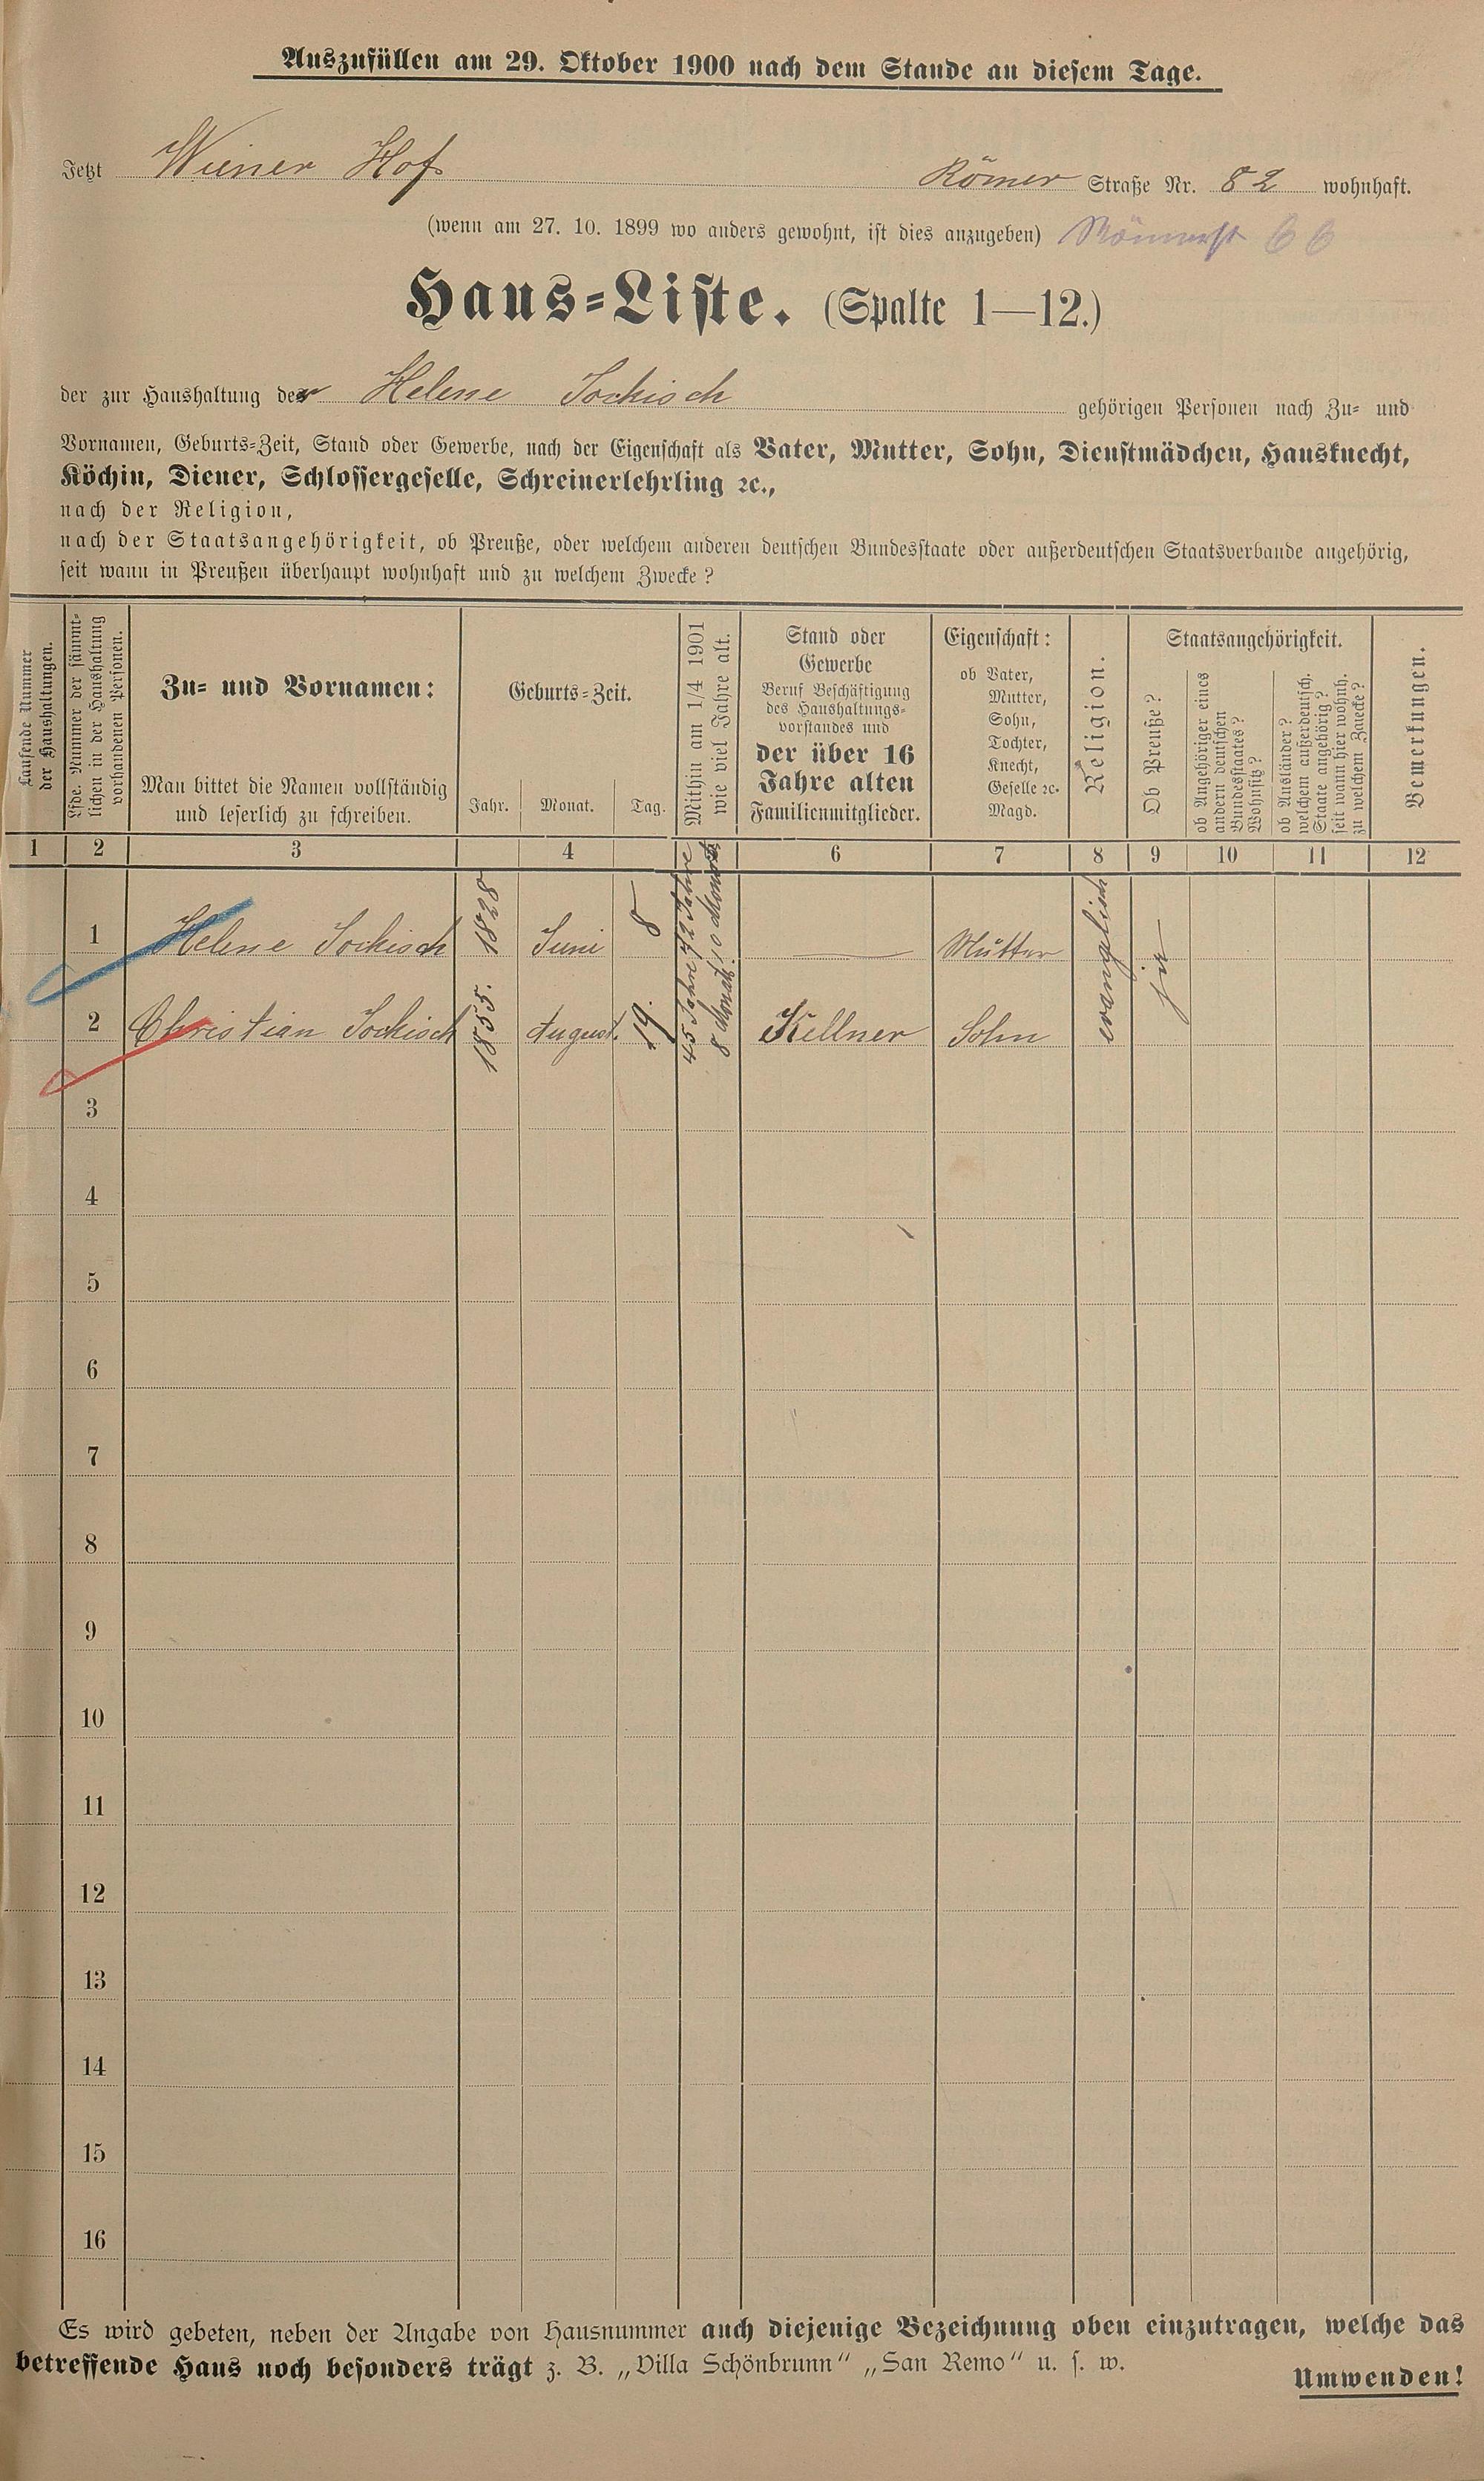 Auszufüllen am 29. Oktober 1900 nach dem Stande an diesem Tage.
Jetzt Wiener Hof Römer Straße Nr. 82 wohnhaft.
(wenn am 27. 10. 1899 wo anders gewohnt, ist dies anzugeben) 66
Haus-Liste. (Spalte 1—12.)
der zur Haushaltung der Helene Sockisch gehörigen Personen nach Zu- und
Vornamen, Geburts-Zeit, Stand oder Gewerbe, nach der Eigenschaft als Vater, Mutter, Sohn, Dienstmädchen, Hausknecht,
Köchin, Diener, Schlossergeselle, Schreinerlehrling ꝛc.,
nach der Religion,
nach der Staatsangehörigkeit, ob Preuße, oder welchem anderen deutschen Bundesstaate oder außerdeutschen Staatsverbande angehörig,
seit wann in Preußen überhaupt wohnhaft und zu welchem Zwecke?
Laufende Nummer
der Haushaltungen.
Lfde. Nummer der sämmt-
lichen in der Haushaltung
vorhandenen Personen.
Zu- und Vornamen:
Man bittet die Namen vollständig
und leserlich zu schreiben.
Geburts-Zeit.
Jahr. Monat. Tag.
Mithin am 1/4 1901
wie viel Jahre alt.
Stand oder
Gewerbe
Beruf Beschäftigung
des Haushaltungs-
vorstandes und
der über 16
Jahre alten
Familienmitglieder.
Eigenschaft:
ob Vater,
Mutter,
Sohn,
Tochter,
Knecht,
Geselle ꝛc.
Magd.
Religion.
Staatsangehörigkeit.
Ob Preuße?
ob Angehöriger eines
andern deutschen
Bundesstaates?
Wohnsitz?
ob Ausländer?
welchem außerdeutsch.
Staate angehörig?
seit wann hier wohnh.
zu welchem Zwecke?
Bemerkungen.
1 2 3 4 6 7 8 9 10 11 12
1 Helene Sockisch 1828 Juni 8 72 Jahre 10 Monate — Mutter evanglisch ja
2 Christian Sockisch 1855. August. 19. 45 Jahre 8 Monat Kellner Sohn
3
4
5
6
7
8
9
10
11
12
13
14
15
16
Es wird gebeten, neben der Angabe von Hausnummer auch diejenige Bezeichnung oben einzutragen, welche das
betreffende Haus noch besonders trägt z. B. „Villa Schönbrunn“ „San Remo“ u. s. w.
Umwenden!